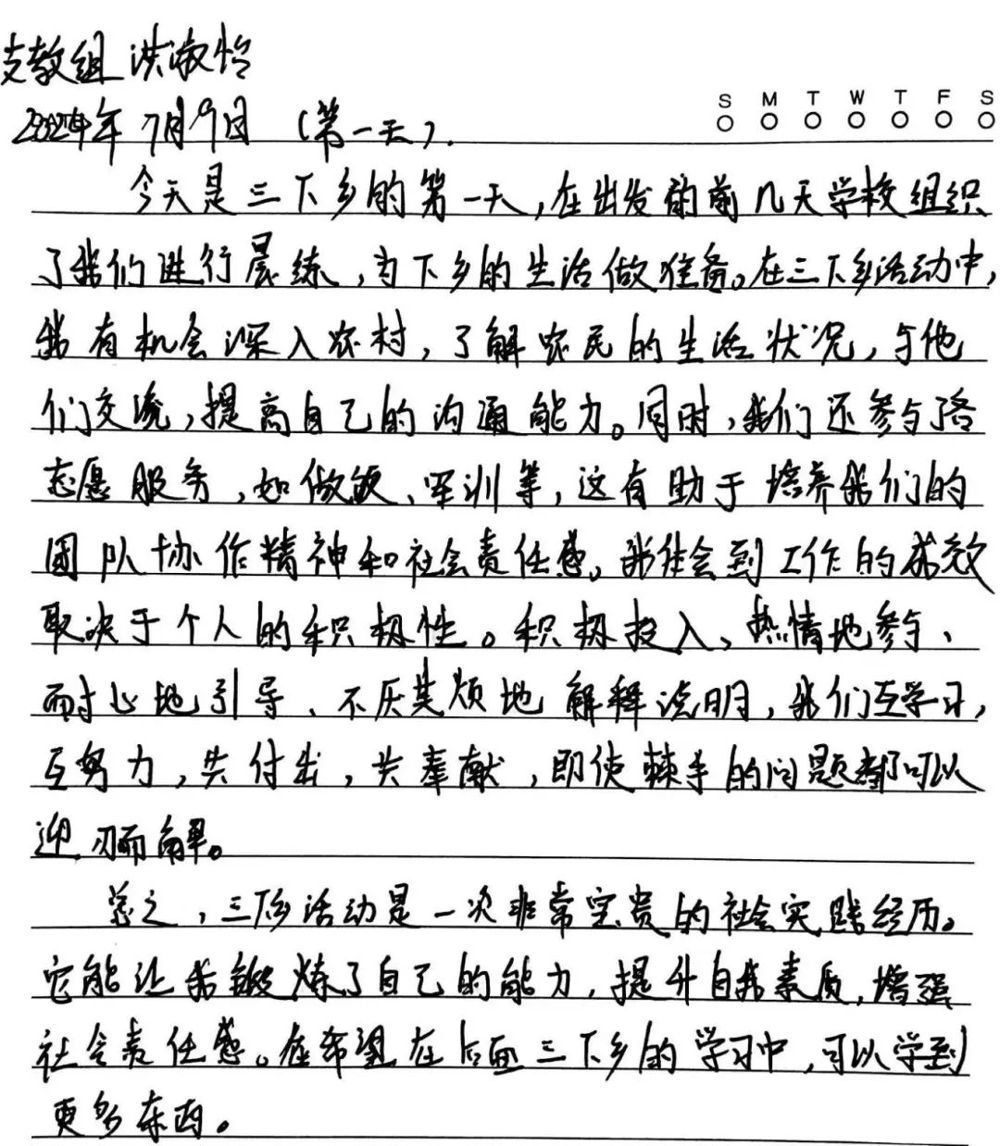 支教组 洪淑怡
2024年 7月9日 (第一天).
S M T W T F S
今天是三下乡的第一天,在出发的前几天学校组织
了我们进行晨练,为下乡的生活做准备。在三下乡活动中,
我有机会深入农村,了解农民的生活状况,与他
们交流,提高自己的沟通能力。同时,我们还参与了各
志愿服务,如做饭、军训等,这有助于培养我们的
团队协作精神和社会责任感。我体会到工作的成效
取决于个人的积极性。积极投入、热情地参与、
耐心地引导、不厌其烦地解释说明,我们互学习,
互努力,共付出,共奉献,即使棘手的问题都可以
迎刃而解。
总之,三下乡活动是一次非常宝贵的社会实践经历。
它能让我锻炼了自己的能力,提升自我素质,增强
社会责任感。在希望在后面三下乡的学习中,可以学到
更多东西。